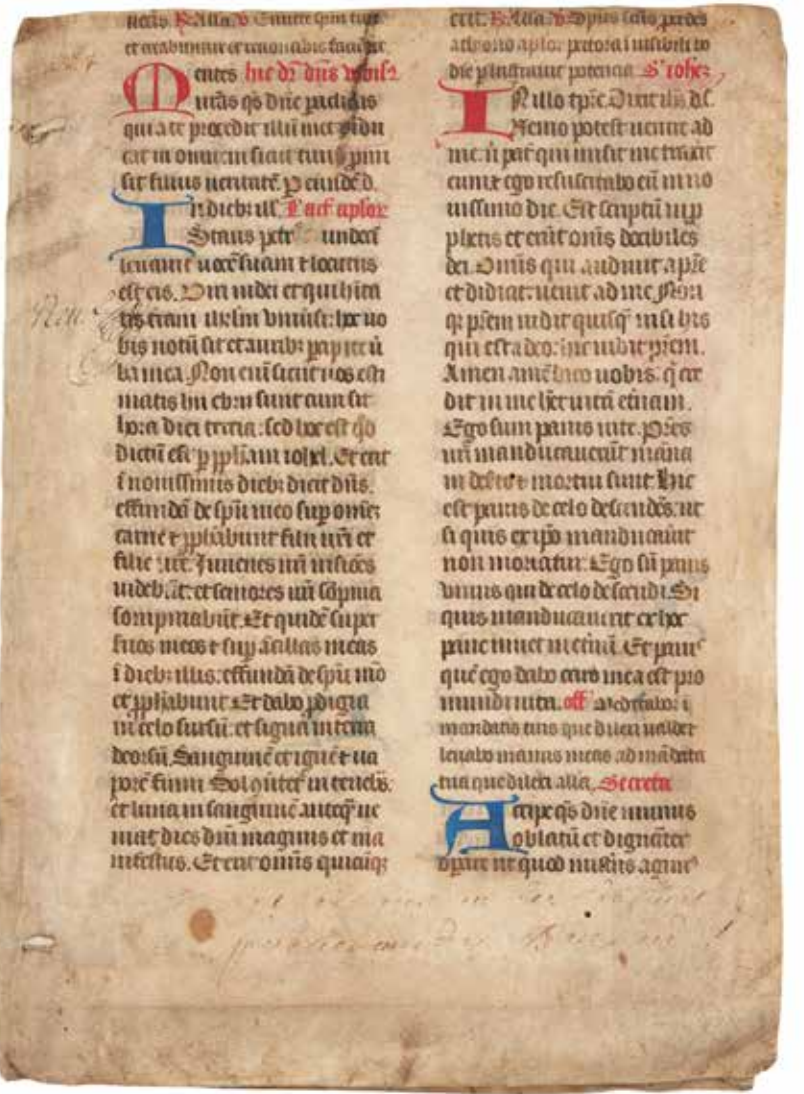 Alla. v Emitte spm tuū
et creabuntur et renouabis faciē tr̄e.
Mentes hic dr̄ dns vobisͨ
nr̄as qs dn̄e paclitus
qui a te procedit illuīet ⁊ īdu
cat in omnem sicut tuus pmi
sit filius ueritatē. P eiusdē d.
In dieb; ill̄. L act aplor
Stans petr̉ cū undecī
leuauit uocē suam ⁊ locutus
est eis. Viri iudei et qui hīta
tis etiam ihrlm vniūsi: hoc uo
bis notū sit et aurib; pcipite ū
ba mea. Non enī sicut uos esti
matis hii ebrii sunt cum sit
hora diei tercia: sed hoc est qd̄
dictū est p pph̄am iohel. Et erit
ī nouissimis dieb; dicit dn̄s.
effundā de spū meo sup omē;
carnē ⁊ pph̄abunt filii ur̄i et
filie ur̄e. Iuuenes ur̄i uisiōes
uideb̄ūt: et seniores ur̄i sōpnia
sompniabūt. Et quidē super
suos meos ⁊ sup ācillas meas
ī dieb; illis: effundā de spū mō
et pph̄abunt. Et dabo pdigia
ī celo sursū: et signa in terra
deorsū. Sanguinē et ignē ⁊ ua
porē fumi. Sol ꝯūtet̄ in tenebͨs.
et luna in sanguinē. anteqͣ; ue
niat dies dn̄i magnus et ma
nifestus. Et erit omīs quicūq;
Alla. v Spūs sc̄us pcedēs
a throno aplor; pectora īuisibili ho
die penetrauit potencia. S' iohe;
In illo tpr̄e. Dixit ih̄s disͨ.
Nemo potest uenire ad
me. n̄ pat̉ qui misit me traxit
eum: ⁊ ego resuscitabo eū in no
uissimo die. Est scriptū in p
phetis et erūt om̄s docibiles
dei. Omīs qui audiuit a pr̄e
et didicit: uenit ad me. Non
qͣ; pr̄em uidit quisqͣ; nisi his
qui est a deo: hic uidit pr̄em.
Amen amē dico uobis. q̄ cre
dit in me hēt uitā etn̄am.
Ego sum panis uite. Pr̄es
ur̄i manducauerūt māna
in deserto ⁊ mortui sunt. Hic
est panis de celo descendēs. ut
si quis ex ip̄o manducauīt
non moriatur. Ego sū panis
viuus qui de celo descendi. Si
quis manducauerit ex hoc
pane uiuet in etnū. Et panͥs
quē ego dabo caro mea est pro
mundi uita. off Meditabor ī
mandatis tuis que dilexi ualde: ⁊
leuabo manus meas ad mādata
tua que dilexi alla. Secreta
Accipe qs dn̄e munus
oblatū et dignāter
opare ut quod misͭiis agimͥ